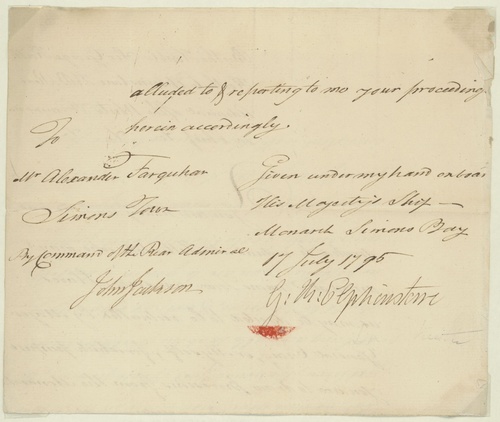 alluded to & reporting to me your proceeding
herein accordingly
To
Mr Alexander Farquhar
Simons Town
By Command of the Rear Admiral
John Jackson
Given under my hand on board
His Majesty's Ship
Monarch Simons Bay
17 July 1795
G: K: Elphinstone